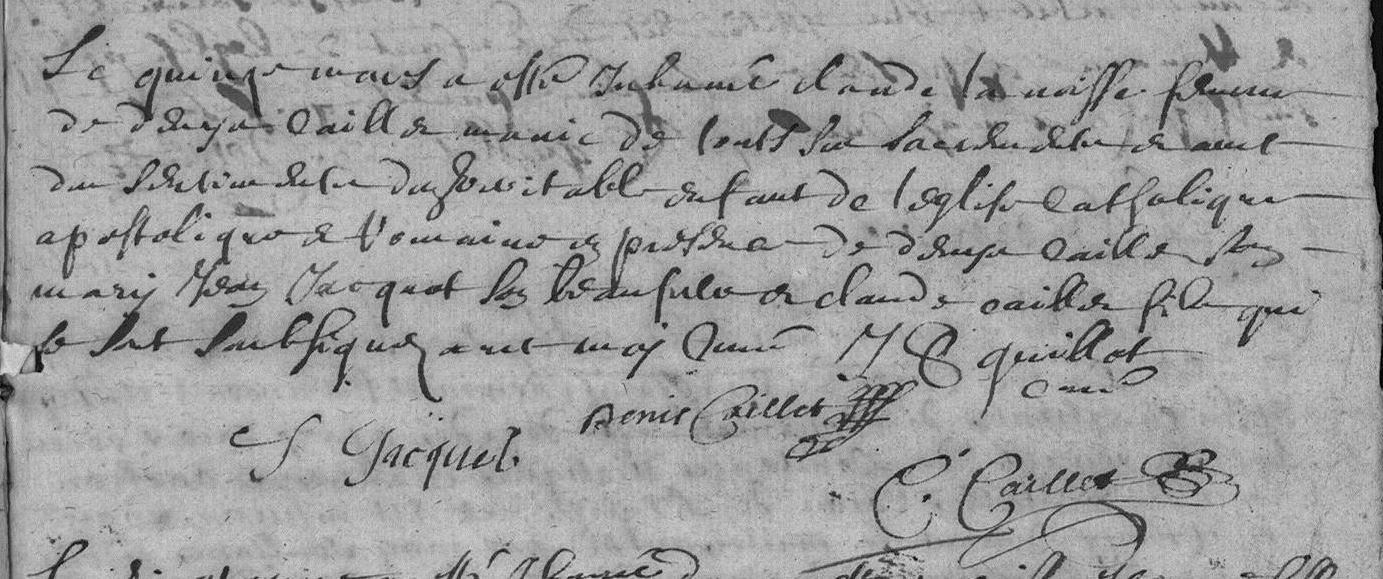 Le quinze mars a esté Inhumé claude la noisse femme
de denys Caillet munie de touts ses sacrements et avec
des sentiments du veritable enfant de l'eglise catholique
apostolique et Romaine en presence de denys Caillet son
mary Jean Jacquot son beaufrere et claude caillet fils qui
se sont soubsignez avec moy Curé J B quillot
curé
J Jacquot Denis Caillet
C. Caillet